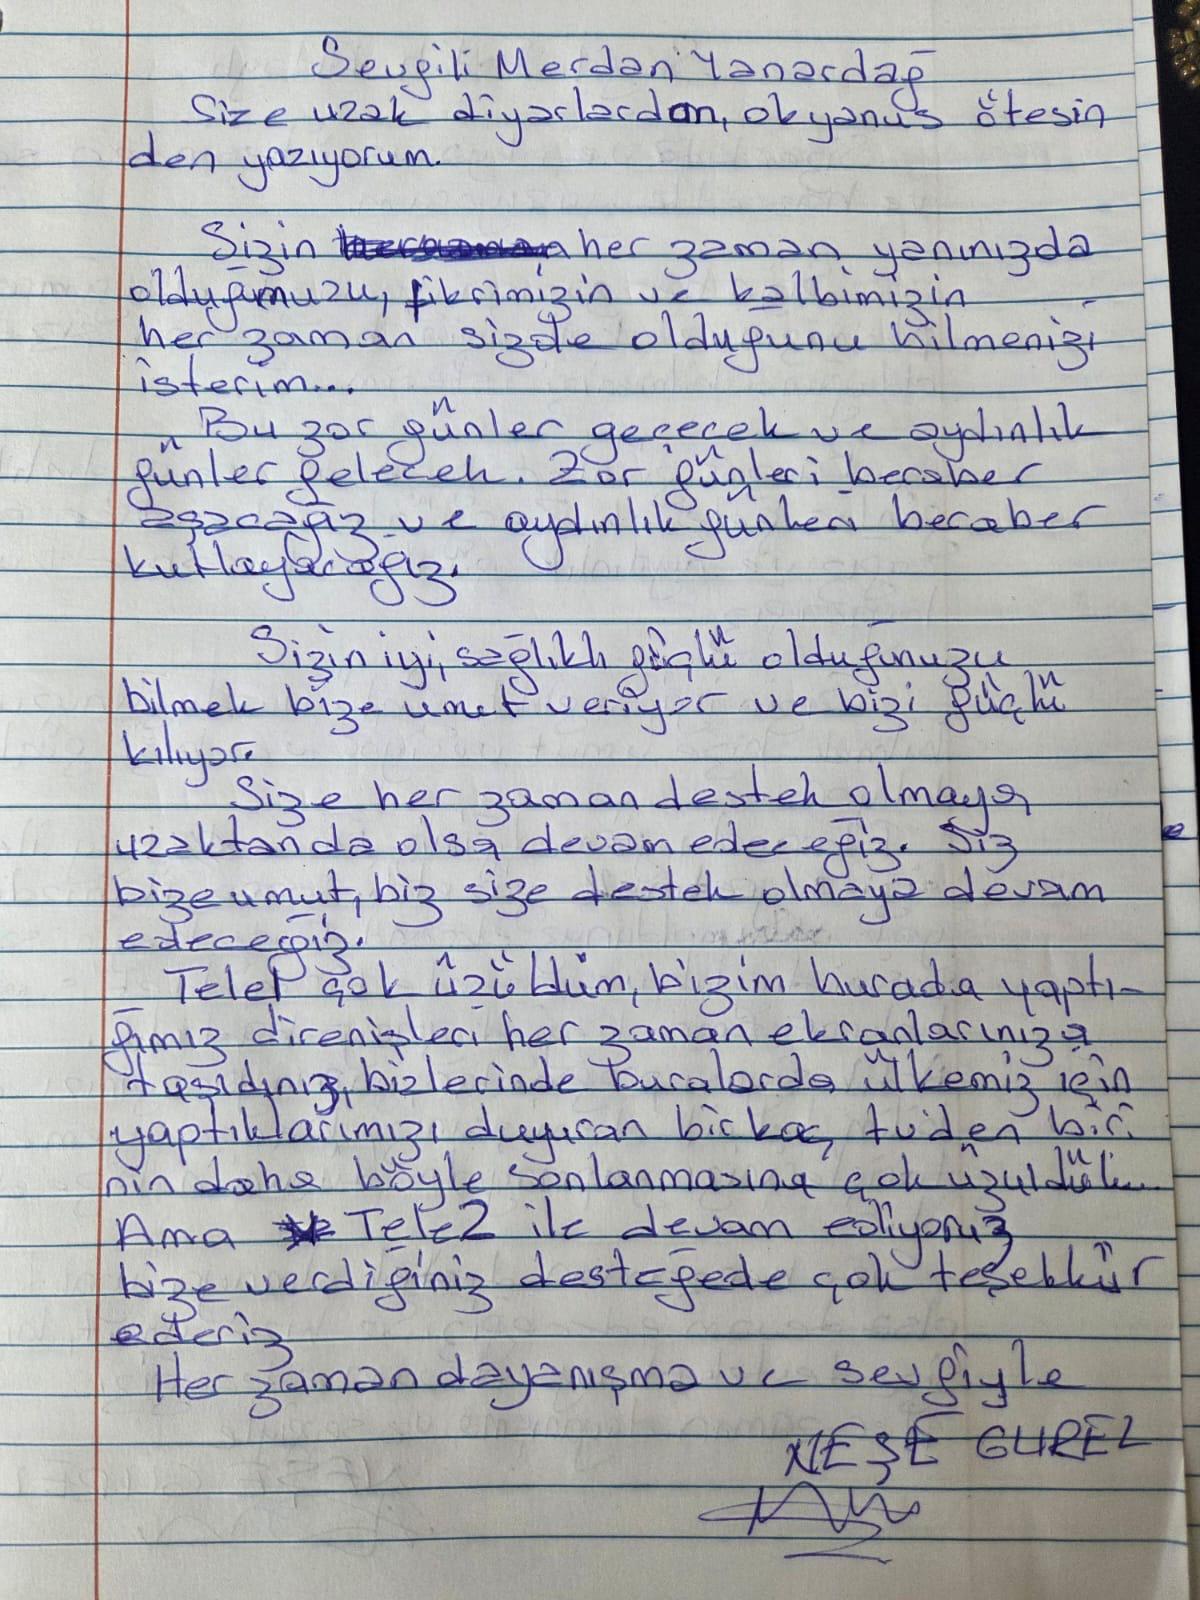 Sevgili Merdan Yanardağ
Size uzak diyarlardan, okyanus ötesin
den yazıyorum.
Sizin her zaman yanınızda
olduğumuzu, fikrimizin ve kalbimizin
her zaman sizde olduğunu bilmenizi
isterim...
Bu zor günler geçecek ve aydınlık
günler gelecek. Zor günleri beraber
aşacağız ve aydınlık günleri beraber
kutlayacağız.
Sizin iyi, sağlıklı güçlü olduğunuzu
bilmek bize umut veriyor ve bizi güçlü
kılıyor.
Size her zaman destek olmaya
uzaktanda olsa devam edeceğiz. Siz
bize umut, biz size destek olmaya devam
edeceğiz.
Tele1 çok üzüldüm, bizim burada yaptı-
ğımız direnişleri her zaman ekranlarınıza
taşıdınız, bizlerinde buralarda ülkemiz için
yaptıklarımızı duyuran birkaç tv'den biri
nin daha böyle sonlanmasına çok üzüldük.
Ama Tele2 ile devam ediyoruz
bize verdiğiniz desteğede çok teşekkür
ederiz
Her zaman dayanışma ve sevgiyle
NEŞE GUREL